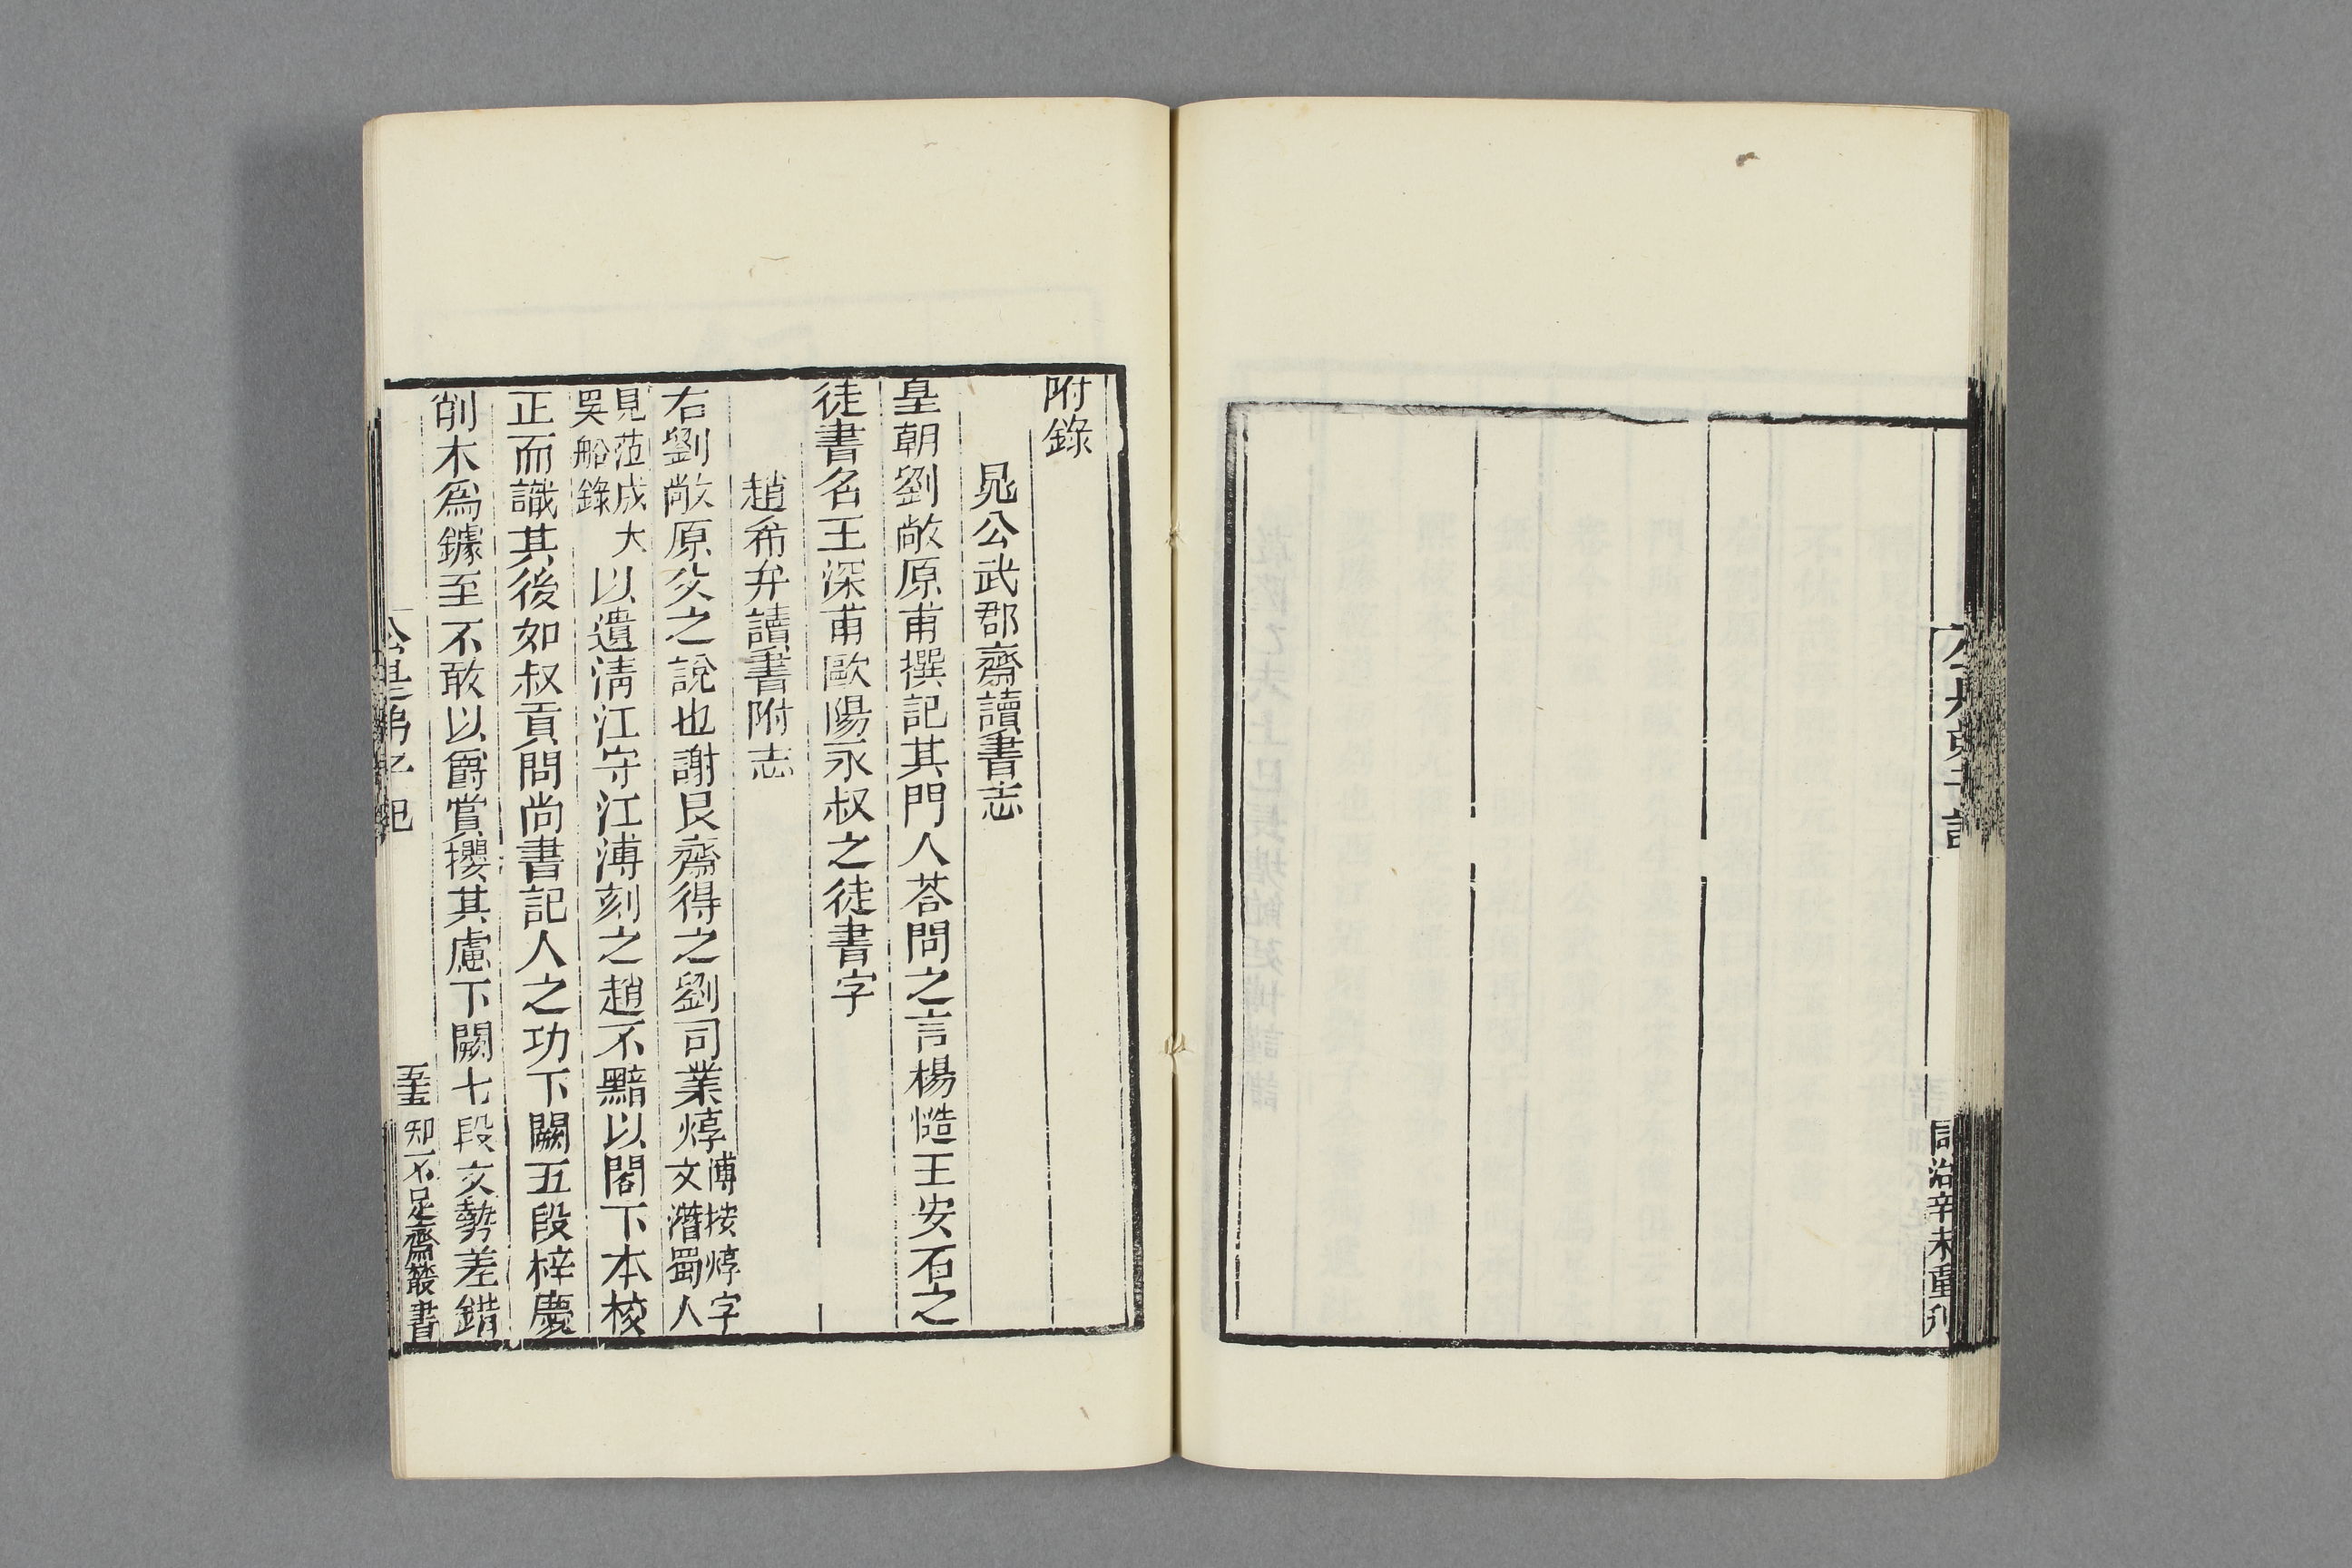 公是弟子記
同治辛未重刊
附錄
晁公武郡齋讀書志
皇朝劉敞原甫撰記其門人荅問之言楊慥王安石之
徒書名王深甫歐陽永叔之徒書字
趙希弁讀書附志
右劉敞原父之說也謝艮齋得之劉司業焞博按焞字文潛蜀人
見范成大吳船錄以遺淸江守江溥刻之趙不黯以閣下本校
正而識其後如叔貢問尚書記人之功下闕五段梓慶
削木爲鐻至不敢以爵賞攖其慮下闕七段文勢差錯
公是弟子記
知不足齋叢書